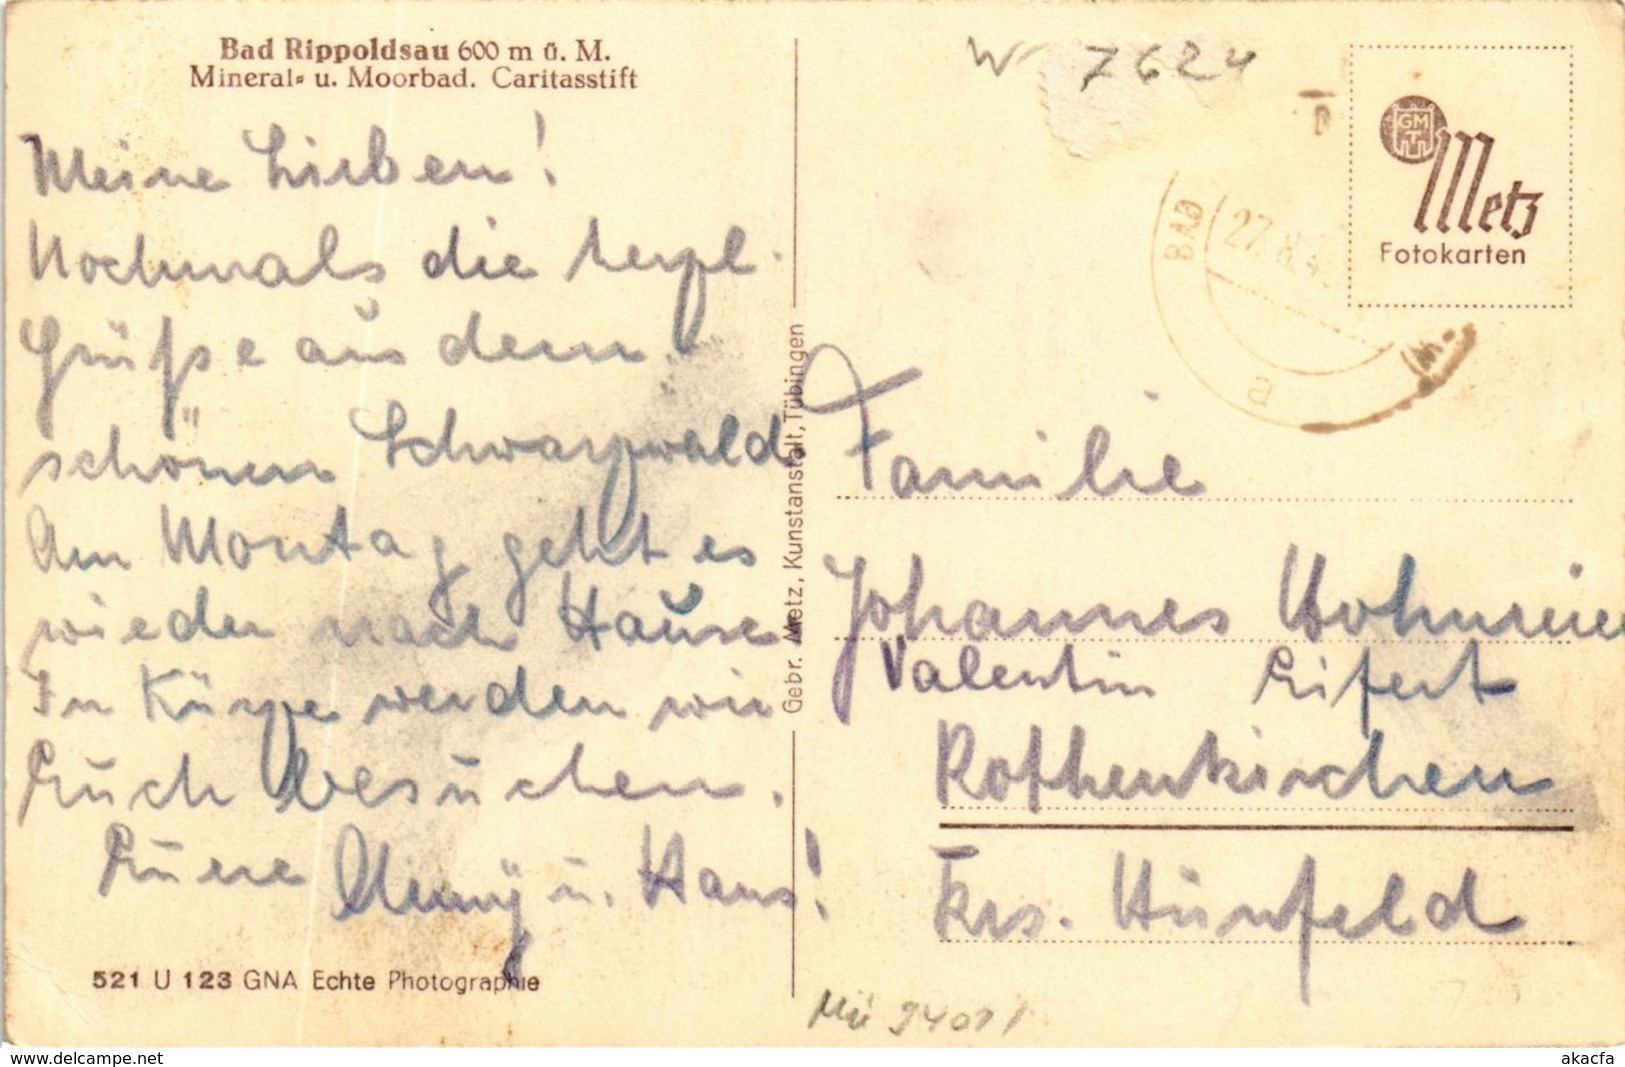 Bad Rippoldsau 600 m ü. M.
Mineral- u. Moorbad. Caritasstift
Meine Lieben!
Nochmals die herzl.
Grüße aus dem
schönen Schwarzwald
Am Montag geht es
wieder nach Hause
In Kürze werden wir
Euch besuchen.
Euere u. Hans!
521 U 123 GNA Echte Photographie
Gebr. Metz, Kunstanstalt, Tübingen
W 7624
GM
T
Metz
Fotokarten
BAD
27.8.4
a
Familie
Johannes Hohmeier
Valentin Eifert
Rothenkirchen
Krs. Hünfeld
Mü 94011
akacfa